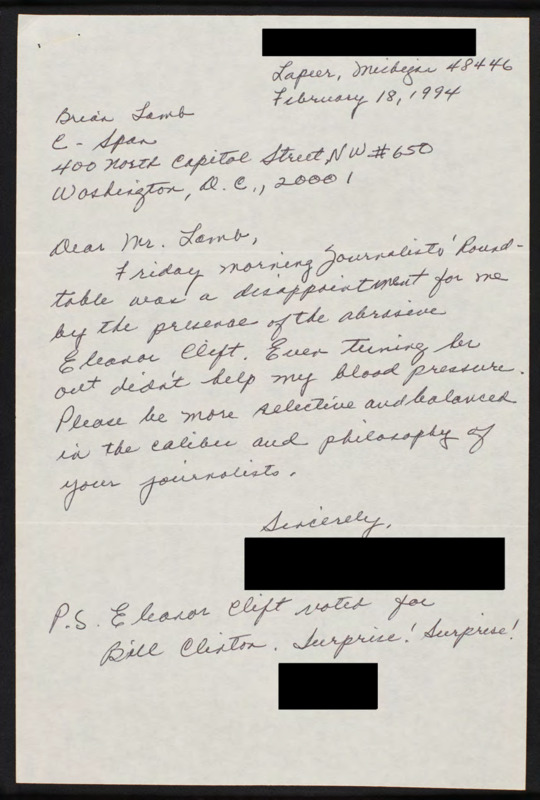 Lapeer, Michigan 48446
February 18, 1994
Brian Lamb
C-Span
400 North Capitol Street, NW #650
Washington, D.C., 20001
Dear Mr. Lamb,
Friday morning Journalists' Round-
table was a disappointment for me
by the presence of the abrasive
Eleanor Clift. Even tuning her
out didn't help my blood pressure.
Please be more selective and balanced
in the caliber and philosophy of
your journalists.
Sincerely,
P.S. Eleanor Clift voted for
Bill Clinton. Surprise! Surprise!